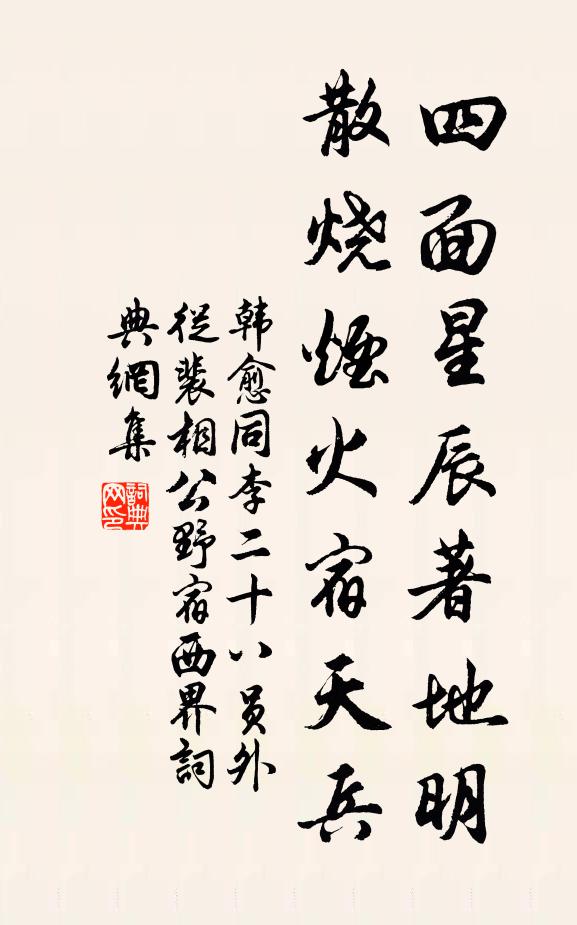 四面星辰著地明
散烧煙火宿天兵
韩愈同李二十八员外
從裴相公野宿西界詞
典網集
詞典网印